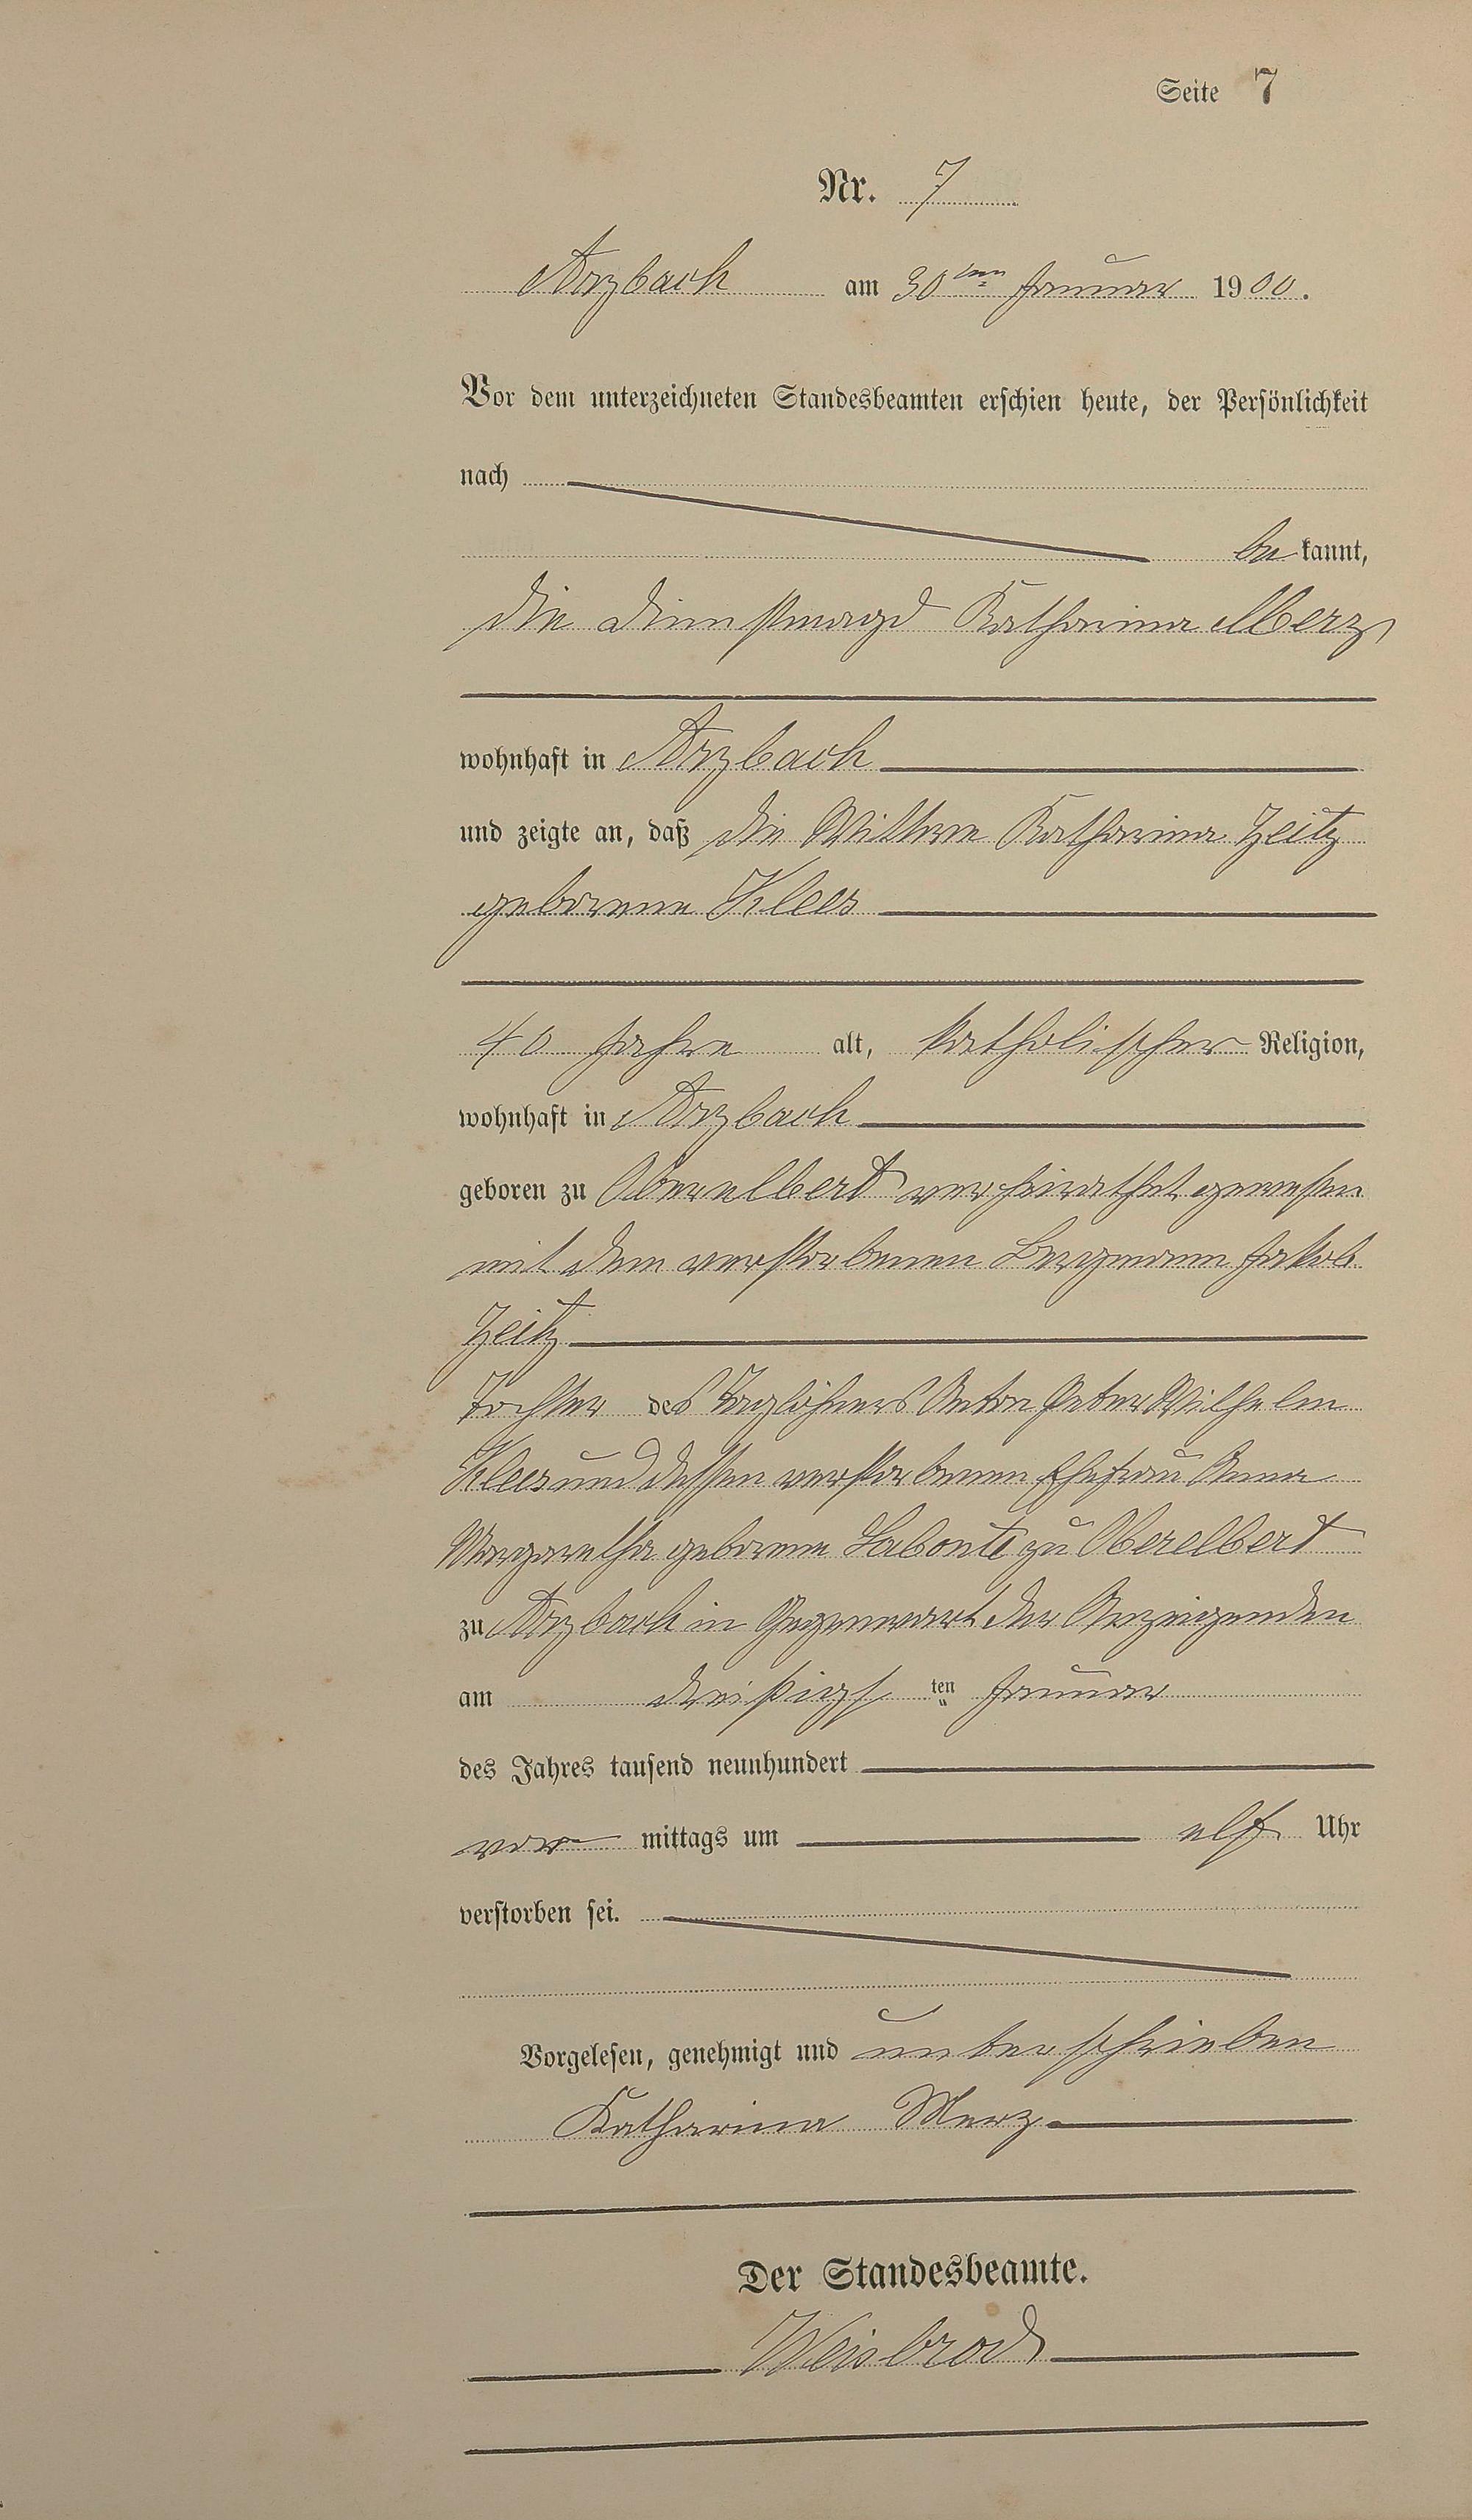 Seite 7
Nr. 7
Arzbach am 30ten Januar 1900.
Vor dem unterzeichneten Standesbeamten erschien heute, der Persönlichkeit
nach
be kannt,
die Dienstmagd Katharina Merz,
wohnhaft in Arzbach
und zeigte an, daß die Wittwe Katharina Zeitz
geborene Klees
40 Jahre alt, katholischer Religion,
wohnhaft in Arzbach
geboren zu Oberelbert verheirathet gewesen
mit dem verstorbenen Bergmann Jakob
Zeitz
Tochter des Taglöhners Anton Peter Wilhelm
Klees und dessen verstorbenen Ehefrau Anna
Margaretha geborene Labonte zu Oberelbert
zu Arzbach in Gegenwart der Anzeigenden
am dreißigsten Januar
des Jahres tausend neunhundert
vor mittags um elf Uhr
verstorben sei.
Vorgelesen, genehmigt und unterschrieben
Katharina Merz
Der Standesbeamte.
Weisbrod